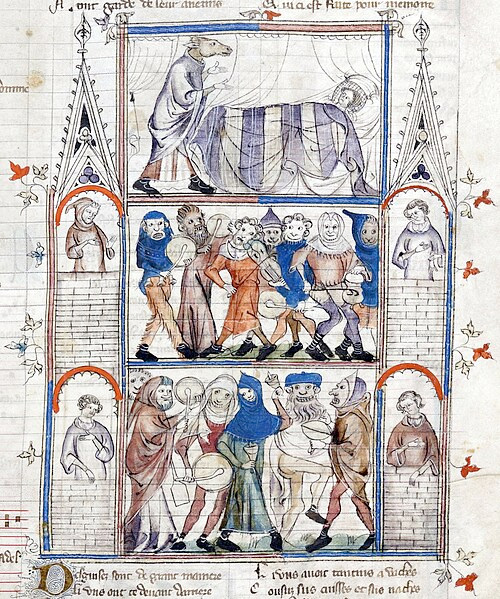 ont garde de leur anemis
ci est pour memoire
Desguisez sont de grant maniere
Li uns ont ce devant darriere
Li uns avoit tantins a vaches
Cousuz sus cuisses et sus naches